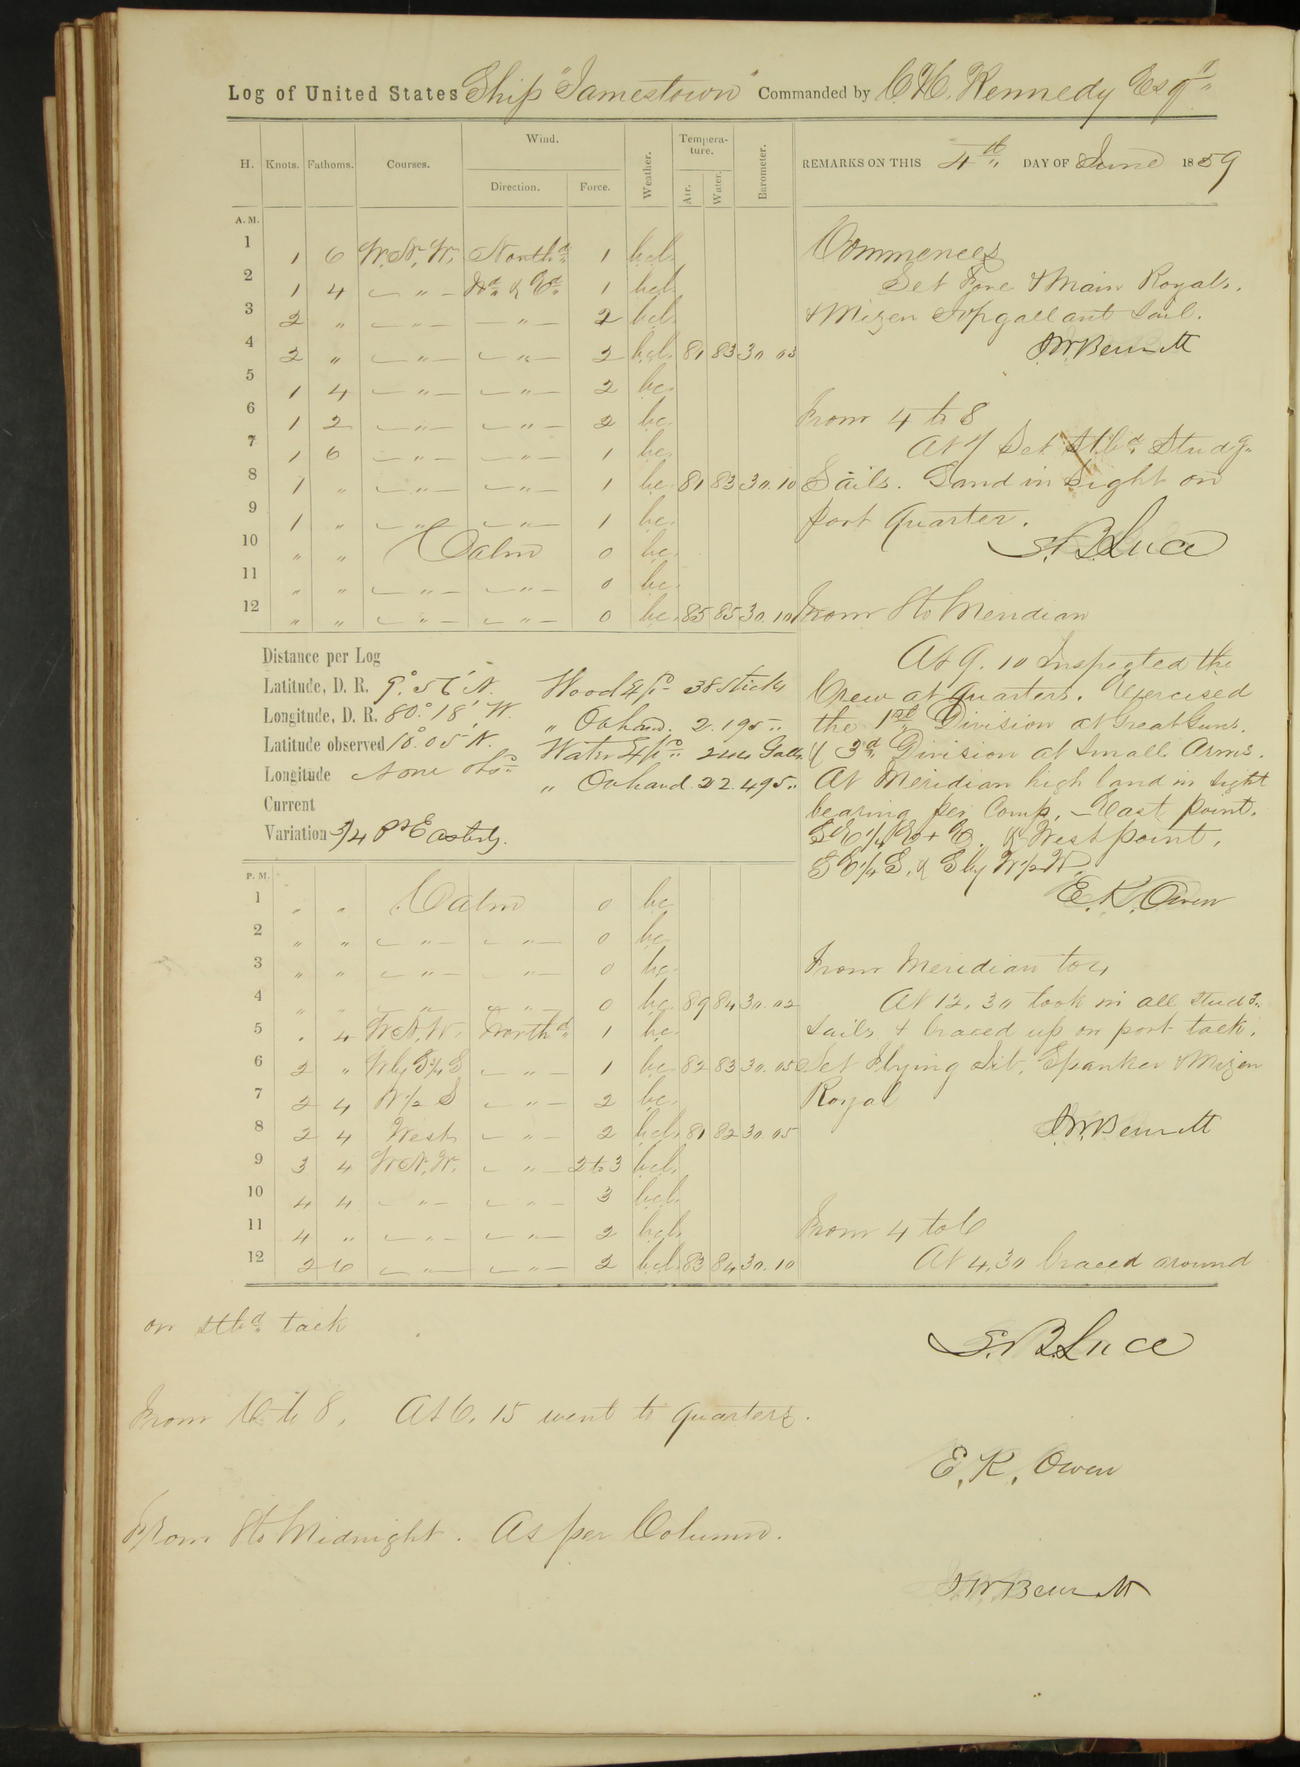 Log of United States Ship "Jamestown" Commanded by C.H. Kennedy Esqr
H. Knots. Fathoms. Courses. Wind. Direction. Force. Weather. Tempera-ture. Air. Water. Barometer. REMARKS ON THIS 4th DAY OF June 1859
A.M.
1 1 6 W.N.W. Northd 1 bcl.
2 1 4 " Nd & Ed 1 bcl.
3 2 " " " 2 bcl.
4 2 " " " 2 bcl. 81 83 30.03
5 1 4 " " 2 bc.
6 1 2 " " 2 bc.
7 1 6 " " 1 bc.
8 1 " " " 1 bc. 81 83 30.10
9 1 " " " 1 bc.
10 " " Calm 0 bc.
11 " " " " 0 bc.
12 " " " " 0 bc. 85 85 30.10
Commences
Set Fore & Main Royals.
& Mizen Topgallant Sail.
J.W. Bennett
From 4 to 8
At 7 Set Stbd. Studg.
Sails. Land in Sight on
port quarter.
S.B. Luce
From 8 to Meridian
At 9.10 Inspected the
Crew at quarters. Exercised
the 1st Division at Great Guns.
& 3d Division at Small Arms.
At Meridian high land in sight
bearing per Comp. - East point.
SE 1/4 E & E. & West point,
SE 1/4 S. & S by W 1/2 W.
E.K. Owen
Distance per Log
Latitude, D. R. 9° 56' N. Wood Exp 38 Sticks
Longitude, D. R. 80° 18' W. " On hand. 2.195 "
Latitude observed 10° 05' N. Water Exp 244 Galls
Longitude None obs " On hand. 22.495 "
Current
Variation 3/4 Pt Easterly.
P.M.
1 " " Calm 0 bc
2 " " " " 0 bc.
3 " " " " 0 bc.
4 " " " " 0 bc. 89 84 30.02
5 " 4 W.N.W. Northd 1 bc.
6 2 " W by S 3/4 S " 1 bc 82 83 30.05
7 2 4 W 1/2 S " 2 bc.
8 2 4 West " 2 bcl. 81 82 30.05
9 3 4 W.N.W. " 2 to 3 bcl.
10 4 4 " " 3 bcl.
11 4 " " " 2 bcl.
12 2 6 " " 2 bcl. 83 84 30.10
From Meridian to 4
At 12.30 took in all Studg.
sails & braced up on port tack.
Set Flying Jib, Spanker & Mizen
Royal
J.W. Bennett
From 4 to 6
At 4.30 braced around
on stbd tack
S.B. Luce
From 6 to 8. At 6.15 went to quarters.
E.K. Owen
From 8 to Midnight. As per Column.
J.W. Bennett